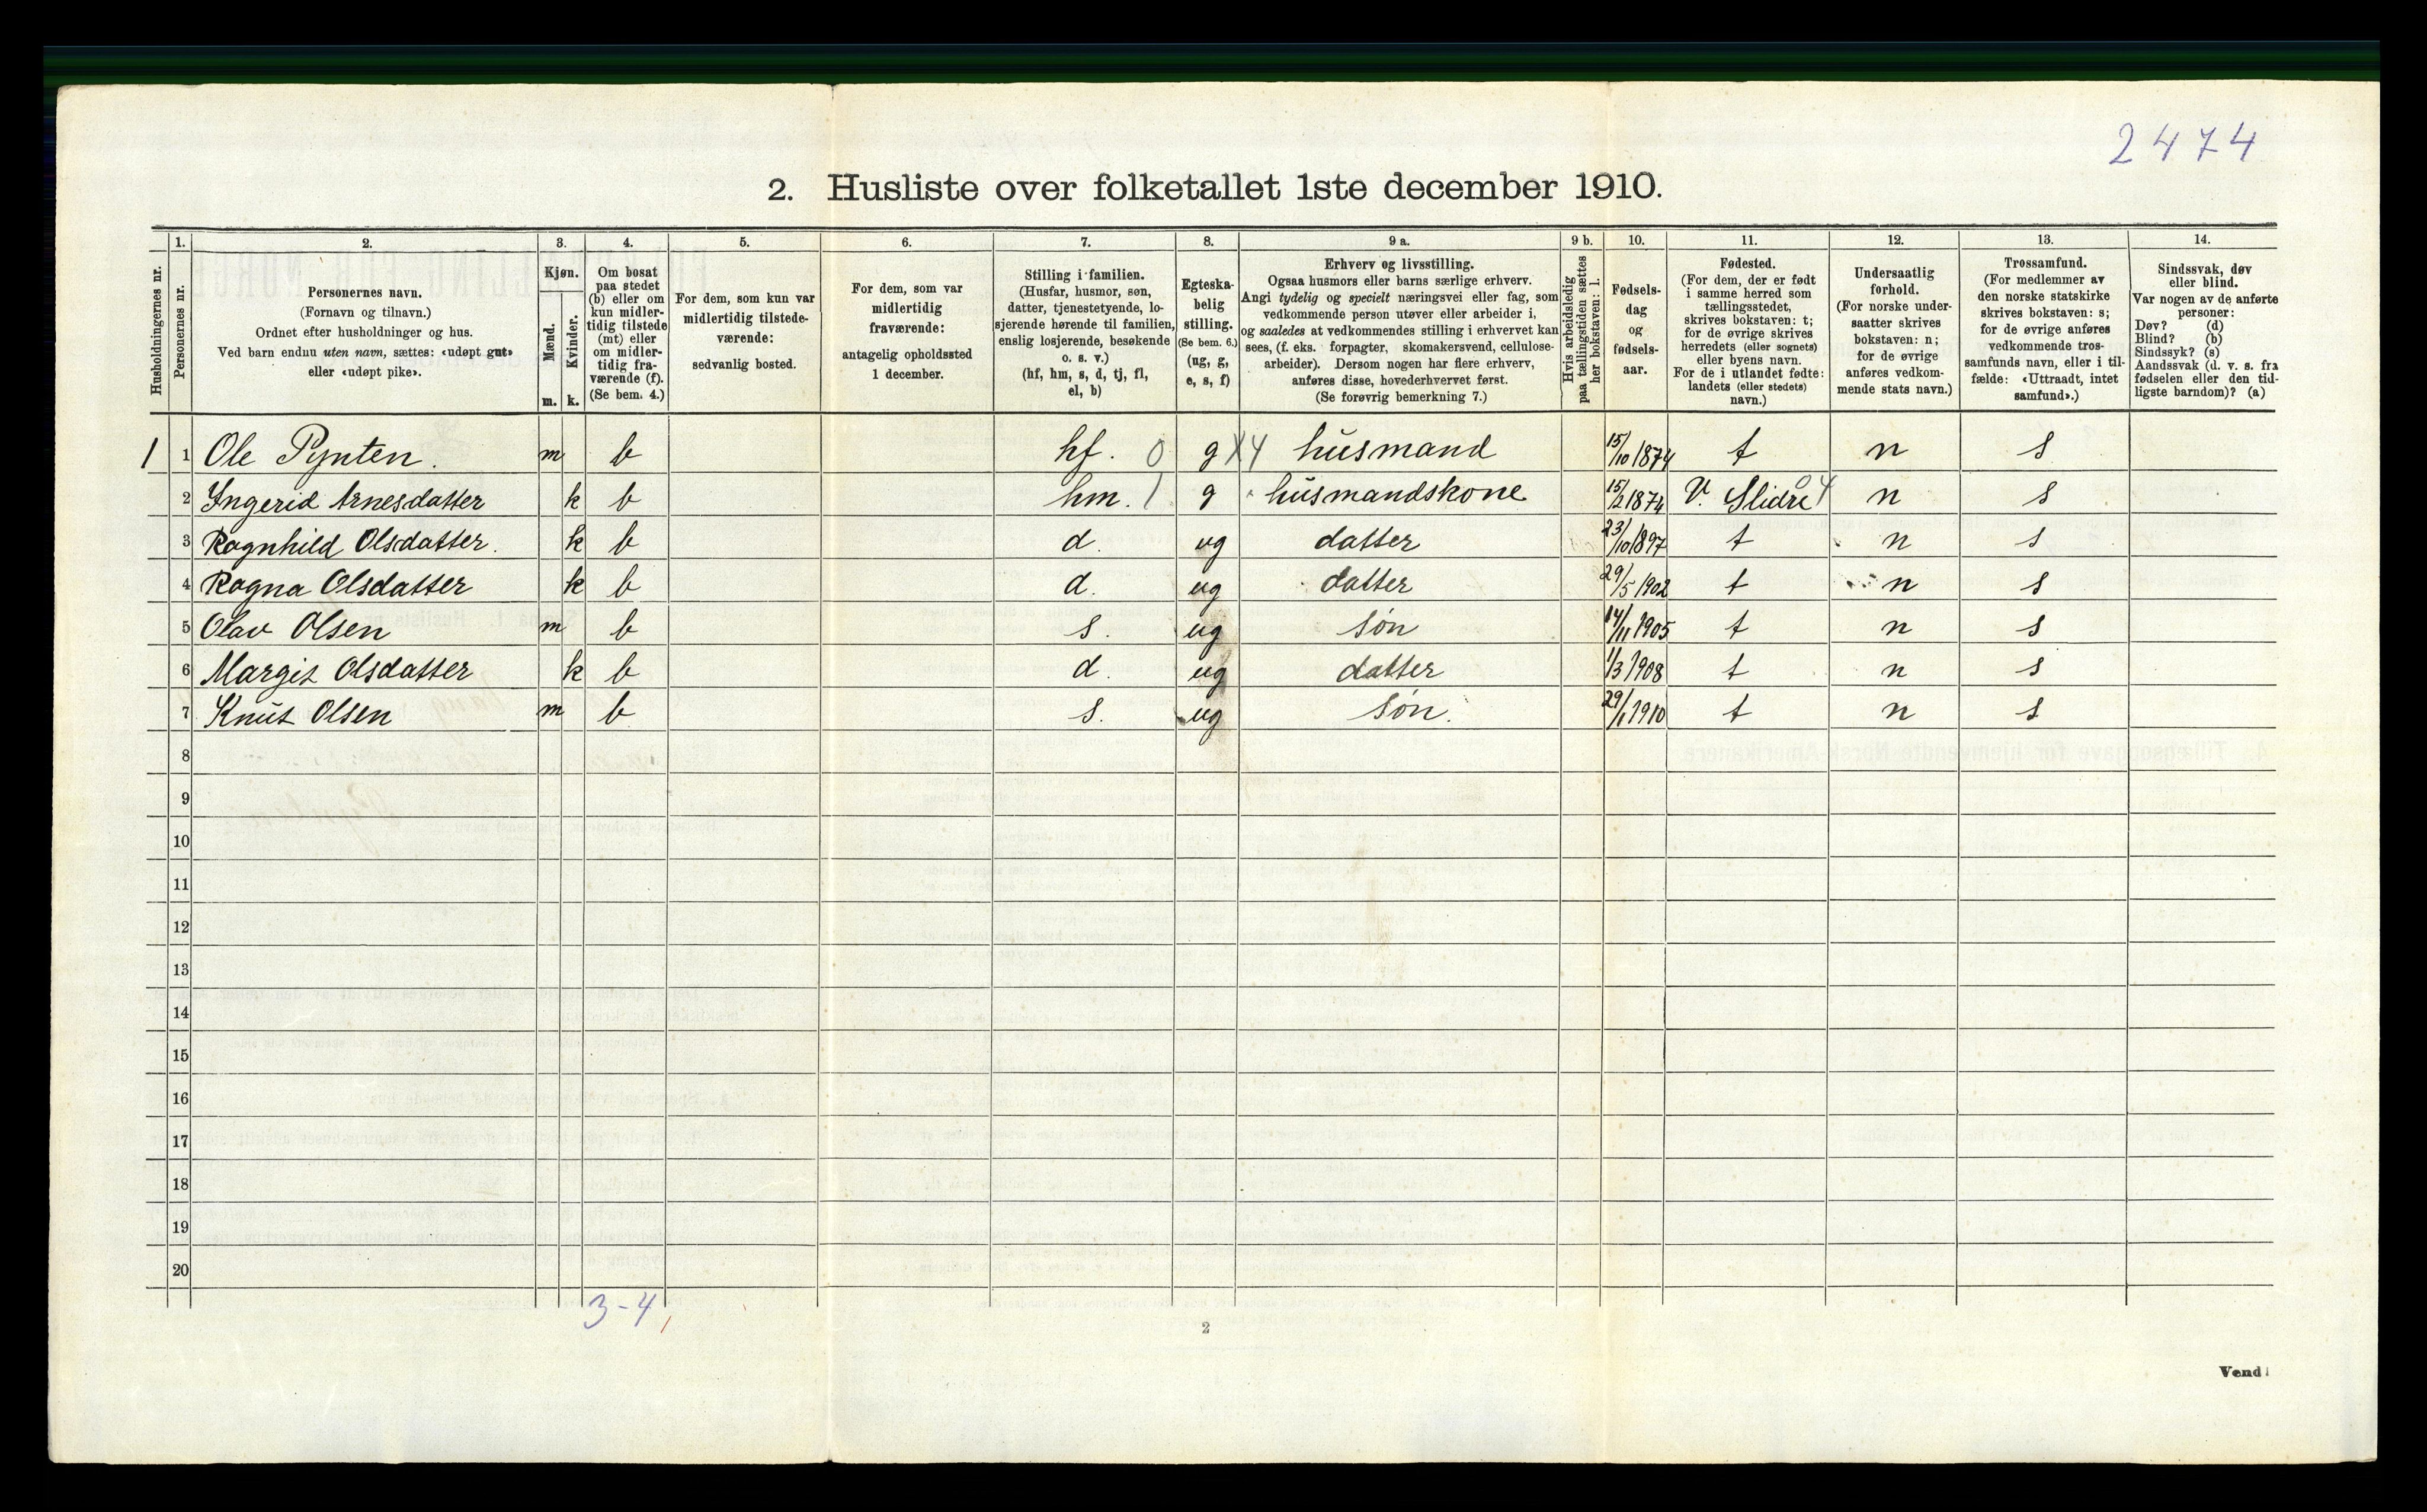 2474
2. Husliste over folketallet 1ste december 1910.
Husholdningernes nr.
1. Personernes nr.
2. Personernes navn.
(Fornavn og tilnavn.)
Ordnet efter husholdninger og hus.
Ved barn endnu uten navn, sættes: «udøpt gut»
eller «udøpt pike».
3. Kjøn.
Mænd. m.
Kvinder. k.
4. Om bosat
paa stedet
(b) eller om
kun midler-
tidig tilstede
(mt) eller
om midler-
tidig fra-
værende (f).
(Se bem. 4.)
5. For dem, som kun var
midlertidig tilstede-
værende:
sedvanlig bosted.
6. For dem, som var
midlertidig
fraværende:
antagelig opholdssted
1 december.
7. Stilling i familien.
(Husfar, husmor, søn,
datter, tjenestetyende, lo-
sjerende hørende til familien,
enslig losjerende, besøkende
o. s. v.)
(hf, hm, s, d, tj, fl,
el, b)
8. Egteska-
belig
stilling.
(Se bem. 6.)
(ug, g,
e, s, f)
9 a. Erhverv og livsstilling.
Ogsaa husmors eller barns særlige erhverv.
Angi tydelig og specielt næringsvei eller fag, som
vedkommende person utøver eller arbeider i,
og saaledes at vedkommendes stilling i erhvervet kan
sees, (f. eks. forpagter, skomakersvend, cellulose-
arbeider). Dersom nogen har flere erhverv,
anføres disse, hovederhvervet først.
(Se forøvrig bemerkning 7.)
9 b. Hvis arbeidsledig
paa tællingstiden sættes
her bokstaven: l.
10. Fødsels-
dag
og
fødsels-
aar.
11. Fødested.
(For dem, der er født
i samme herred som
tællingsstedet,
skrives bokstaven: t;
for de øvrige skrives
herredets (eller sognets)
eller byens navn.
For de i utlandet fødte:
landets (eller stedets)
navn.)
12. Undersaatlig
forhold.
(For norske under-
saatter skrives
bokstaven: n;
for de øvrige
anføres vedkom-
mende stats navn.)
13. Trossamfund.
(For medlemmer av
den norske statskirke
skrives bokstaven: s;
for de øvrige anføres
vedkommende tros-
samfunds navn, eller i til-
fælde: «Uttraadt, intet
samfund».)
14. Sindssvak, døv
eller blind.
Var nogen av de anførte
personer:
Døv? (d)
Blind? (b)
Sindssyk? (s)
Aandssvak (d. v. s. fra
fødselen eller den tid-
ligste barndom)? (a)
1 1 Ole Pynten. m b hf. 0 g X4 husmand 15/10 1874 t n s
2 Ingerid Arnesdatter k b hm. 1 g husmandskone 15/2 1874 V. Slidre 4 n s
3 Ragnhild Olsdatter. k b d. ug datter 23/10 1897 t n s
4 Ragna Olsdatter k b d. ug datter 29/5 1902 t n s
5 Olav Olsen m b s. ug søn 14/11 1905 t n s
6 Margit Olsdatter k b d. ug datter 1/3 1908 t n s
7 Knut Olsen m b s. ug søn. 29/1 1910 t n s
8
9
10
11
12
13
14
15
16
17
18
19
20
3-4
2
Vend!